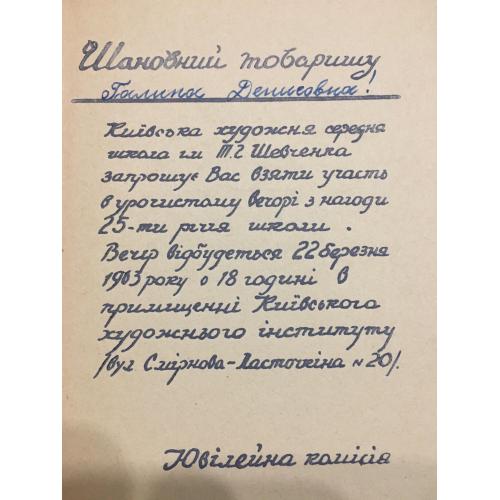 Шановний товаришу
Галина Денисовна!
Київська художня середня
школа ім Т.Г Шевченка
запрошує Вас взяти участь
в урочистому вечорі з нагоди
25-ти річчя школи.
Вечір відбудеться 22 березня
1963 року о 18 годині в
приміщенні Київського
художнього інституту
/вул. Смірнова-Ласточкіна №20/.
Ювілейна комісія